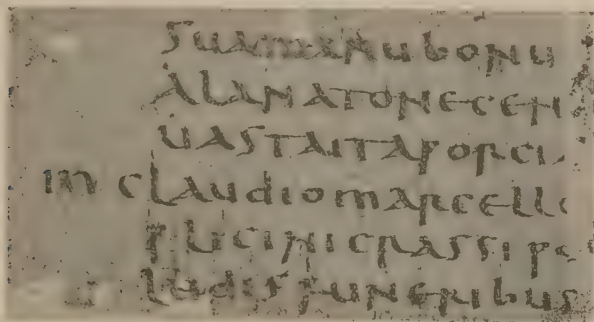 bonu
ALANATONECEN
UASTAITAPORCI
m claudiomarcello
P LICINICRASSIPO
ludisFUNERIbus